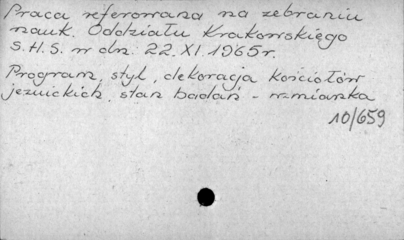 Praca referowana na zebraniu
nauk. Oddziału Krakowskiego
S.H.S. w dn. 22.XI.1965r.
Program, styl, dekoracja kościołów
jezuickich, stan badań - wzmianka
10/659